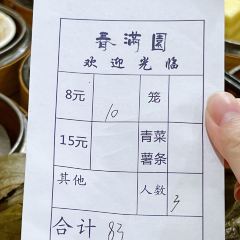 春满園
欢迎光临
8元 10 笼
15元 青菜
薯条
其他 人数 3
合计 83